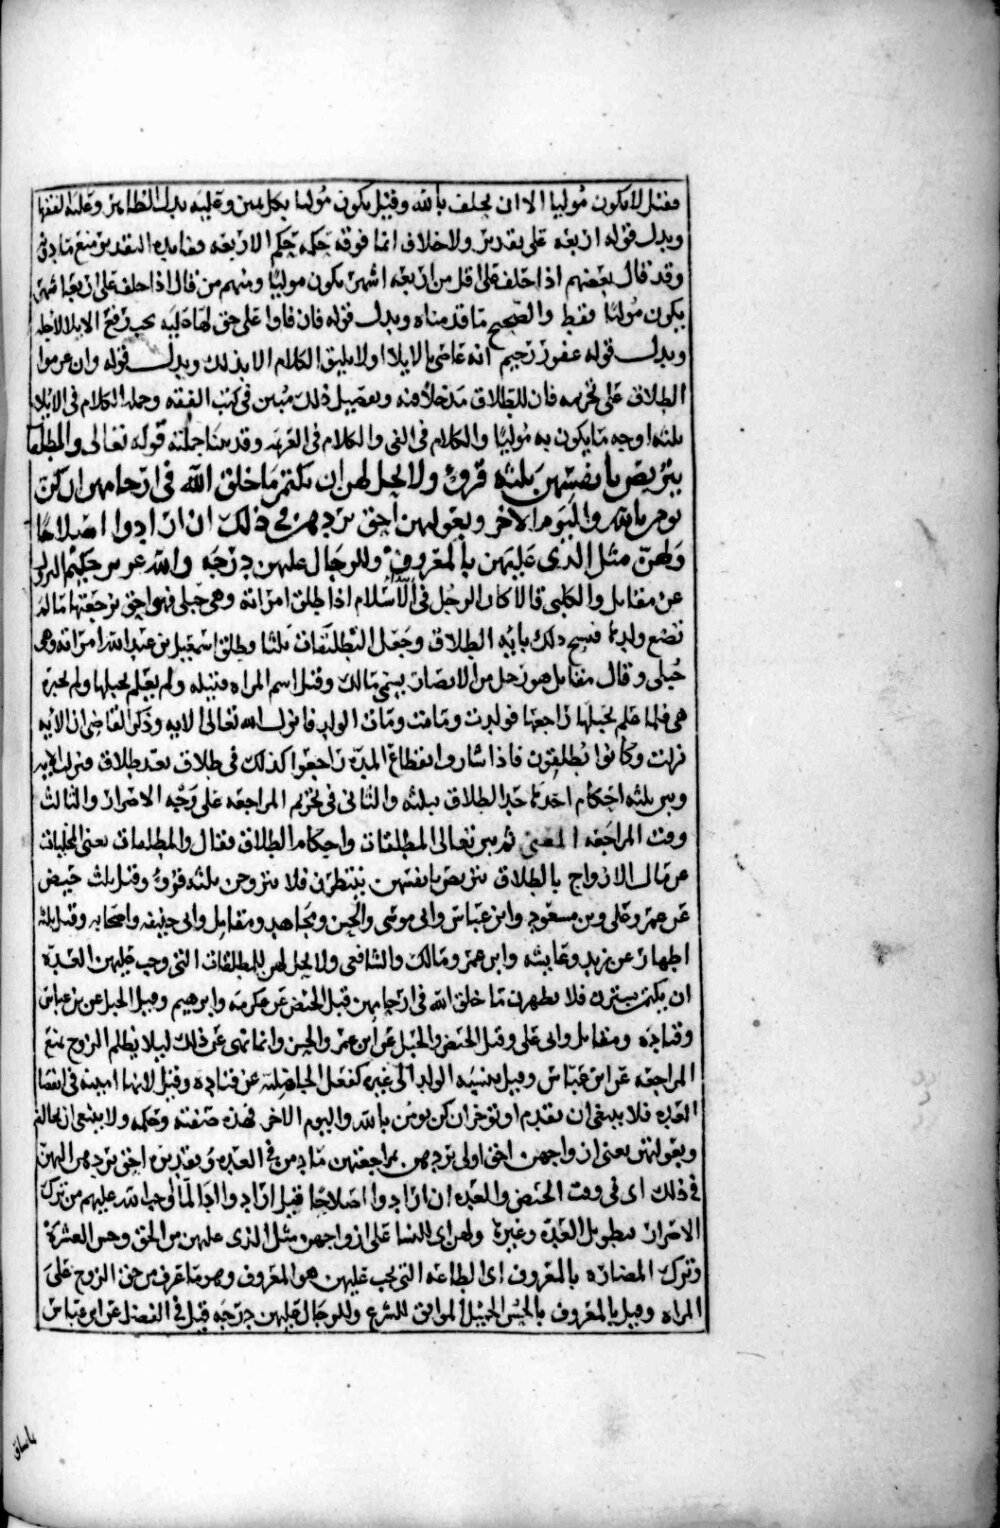 فقيل لا يكون موليا الا ان يحلف بالله وقيل يكون موليا بكل يمين وعليه يدل الظاهر وعليه الفقها
ويدل قوله اربعة على تقدير ولا خلاف انما فوقه حكمه حكم الاربعة ففايده التقدير منع مادون
وقد قال بعضهم اذا حلف على اقل من اربعة اشهر يكون موليا ومنهم من قال اذا حلف على اربعة اشهر
يكون موليا فقط والصحيح ما قدمناه ويدل قوله فان فاوا على حق لها عليه يجب رفع الايلا لاجله
ويدل قوله غفور رحيم انه عاصى بالايلا اولا يليق الكلام الا بذلك ويدل قوله وان عزموا
الطلاق على تحريمه فان للطلاق مدخلا فيه وتفصيل ذلك مبين فى كتب الفقه وجملة الكلام فى الايلا
ثلثه اوجه ما يكون به موليا والكلام فى الفى والكلام فى العزيمه وقد بينا جملته قوله تعالى والمطلقات
يتربصن بانفسهن ثلثة قروء ولا يحل لهن ان يكتمن ما خلق الله فى ارحامهن ان كن
يومن بالله واليوم الاخر وبعولتهن احق بردهن فى ذلك ان ارادوا اصلاحا
ولهن مثل الذى عليهن بالمعروف وللرجال عليهن درجه والله عزيز حكيم النزول
عن مقاتل والكلبى قالا كان الرجل فى اول الاسلام اذا طلق امراته وهى حبلى فهو احق برجعتها ما لم
تضع ولدها فنسخ ذلك بايه الطلاق وجعل التطليقات ثلثا وطلق اسمعيل بن عبد الله امراته وهى
حبلى وقال مقاتل هو رجل من الانصار يسمى مالك وقيل اسم المراه فتيله ولم يعلم بحبلها ولم تخبره
هى فلما علم بحبلها راجعها فولدت وماتت ومات الولد فانزل الله تعالى الايه وذكر القاضى ان الايه
نزلت وكانوا يطلقون فاذا شارفوا انقطاع المدة راجعوا كذلك فى طلاق بعد طلاق فنزلت الايه
وبين ثلثه احكام احدها حد الطلاق بثلثه والثانى فى تحريم المراجعه على وجه الاضرار والثالث
وقت المراجعه المعنى ثم بين تعالى المطلقات واحكام الطلاق فقال والمطلقات يعنى المخليات
عن حال الازواج بالطلاق يتربصن بانفسهن ينتظرن فلا يتزوجن ثلثة قروء وقيل ثلث حيض
عن عمر وعلى وبن مسعود وابن عباس وابى موسى والحسن ومجاهد ومقاتل وابى حنيفه واصحابه وقيل ثلثه
اطهار عن زيد وعايشه وابن عمر ومالك والشافعى ولا يحل لهن للمطلقات التى وجب عليهن العدة
ان يكتمن يسترن فلا يظهرن ما خلق الله فى ارحامهن قيل الحيض عن عكرمه وابرهيم وقيل الحبل عن بن عباس
وقتاده ومقاتل وابى على وقيل الحيض والحبل عن ابن عمر والحسن وانما نهى عن ذلك ليلا يظلم الزوج بمنع
المراجعه عن ابن عباس وقيل بنسبة الولد الى غيره كفعل الجاهلية عن قتاده وقيل لانها امينه فى انقضا
العده فلا ينبغى ان تقدم او توخر ان كن يومن بالله واليوم الاخر فهذه صفته وحكمه ولا ينبغى ان يخالف
وبعولتهن يعنى ازواجهن احق اولى بردهن بمراجعتهن ما دمن فى العده وتقديره احق بردهن اليهن
فى ذلك اى فى وقت الحيض والعده ان ارادوا اصلاحا قيل ارادوا اداء لما اوجب الله عليهم من ترك
الاضرار بتطويل العدة وغيره ولهن اى النسا على ازواجهن مثل الذى عليهن من الحق وحسن العشرة
وترك المضاره بالمعروف اى الطاعه التى يجب عليهن هو المعروف وهو ما عرف من حق الزوج على
المراه وقيل بالمعروف بالحسن الجميل الموافق للشرع وللرجال عليهن درجه قيل فى الفضل عن ابن عباس